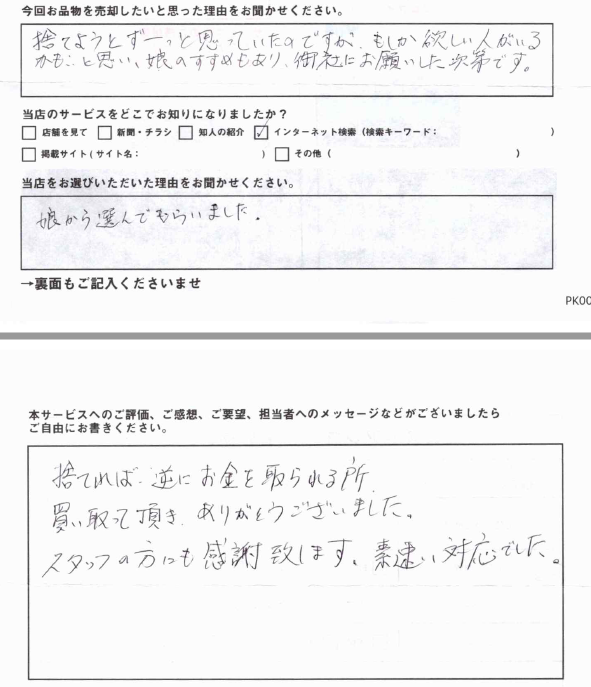 今回お品物を売却したいと思った理由をお聞かせください。
捨てようとずーっと思っていたのですが、もしか欲しい人がいる
かも?と思い、娘のすすめもあり、御社にお願いした次第です。
当店のサービスをどこでお知りになりましたか？
□ 店舗を見て □ 新聞・チラシ □ 知人の紹介 ☑ インターネット検索（検索キーワード： ）
□ 掲載サイト（サイト名： ） □ その他（ ）
当店をお選びいただいた理由をお聞かせください。
娘から選んでもらいました。
→裏面もご記入くださいませ
PK00
本サービスへのご評価、ご感想、ご要望、担当者へのメッセージなどがございましたら
ご自由にお書きください。
捨てれば、逆にお金を取られる所、
買い取って頂き、ありがとうございました。
スタッフの方にも感謝致します。素速い対応でした。